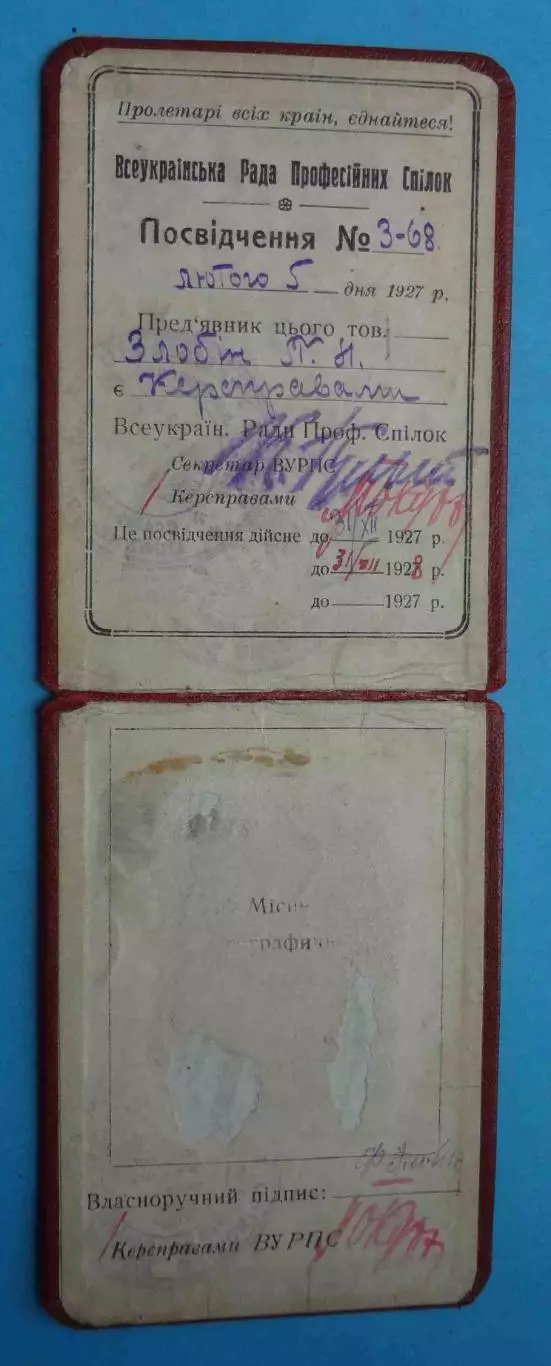 Пролетарі всіх країн, єднайтеся!
Всеукраїнська Рада Професійних Спілок
Посвідчення № 3-68.
лютого 5 дня 1927 р.
Пред'явник цього тов.
Злобін П. Н.
є Керсправами
Всеукраїн. Ради Проф. Спілок
Секретар ВУРПС
Керсправами
Це посвідчення дійсне до 31/XII 1927 р.
до 31/XII 1928 р.
до 1927 р.
Власноручний підпис:
Керсправами ВУРПС